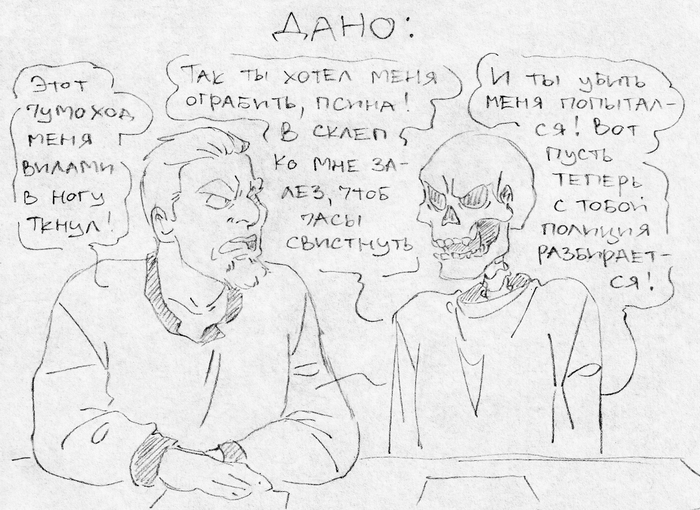 ДАНО:
ЭТОТ
ЧУМОХОД
МЕНЯ
ВИЛАМИ
В НОГУ
ТКНУЛ!
ТАК ТЫ ХОТЕЛ МЕНЯ
ОГРАБИТЬ, ПСИНА!
В СКЛЕП
КО МНЕ ЗА-
ЛЕЗ, ЧТОБ
ЧАСЫ
СВИСТНУТЬ
И ТЫ УБИТЬ
МЕНЯ ПОПЫТАЛ-
СЯ! ВОТ
ПУСТЬ
ТЕПЕРЬ
С ТОБОЙ
ПОЛИЦИЯ
РАЗБИРАЕТ-
СЯ!